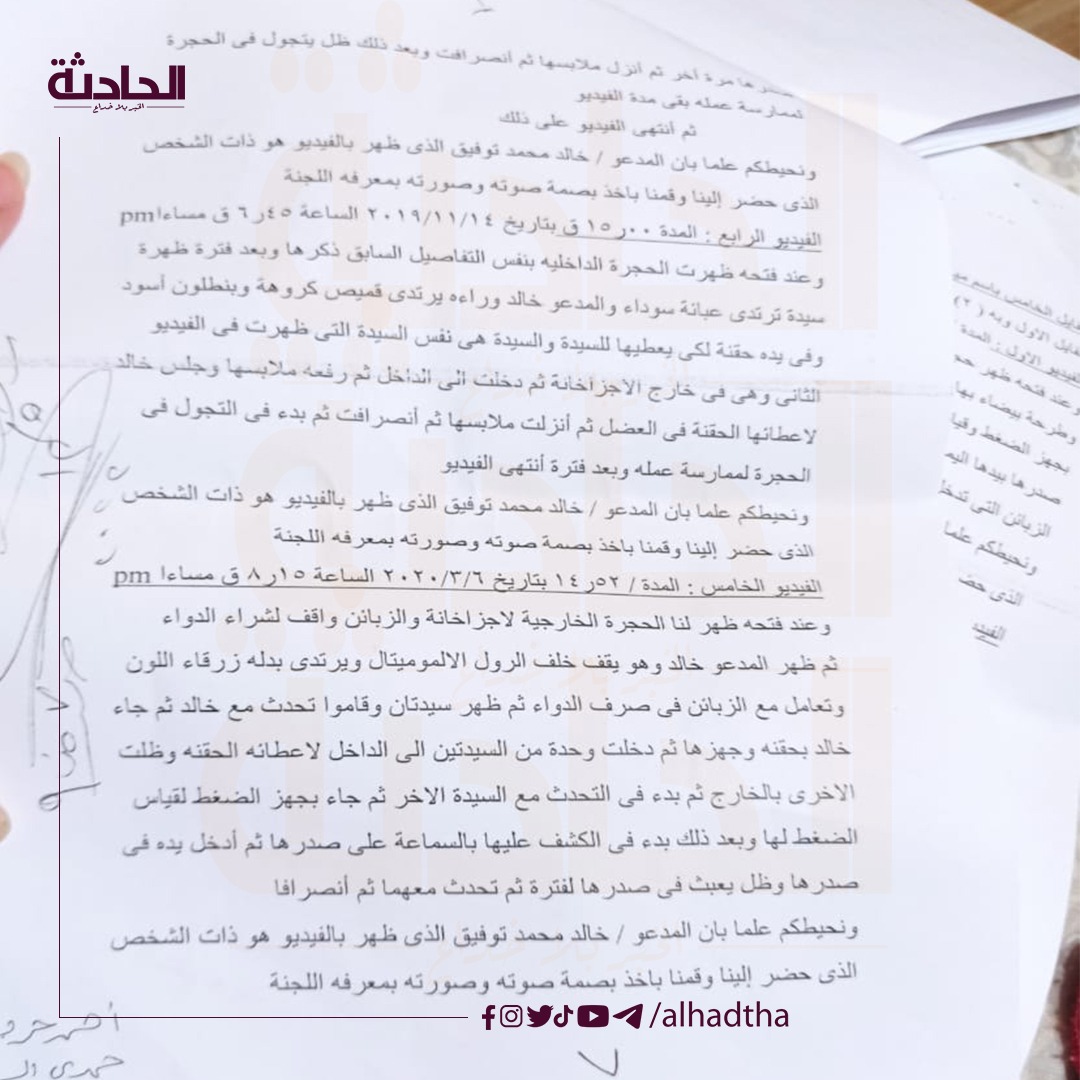 الحادثة
الخبر بلا خداع
مرة أخر ثم أنزل ملابسها ثم أنصرافت وبعد ذلك ظل يتجول فى الحجرة
لممارسة عمله بقى مدة الفيديو
ثم أنتهى الفيديو على ذلك
ونحيطكم علما بان المدعو / خالد محمد توفيق الذى ظهر بالفيديو هو ذات الشخص
الذى حضر إلينا وقمنا باخذ بصمة صوته وصورته بمعرفه اللجنة
الفيديو الرابع : المدة ٠٠ر١٥ ق بتاريخ ٢٠١٩/١١/١٤ الساعة ٤٥ر٦ ق مساءا pm
وعند فتحه ظهرت الحجرة الداخليه بنفس التفاصيل السابق ذكرها وبعد فترة ظهرة
سيدة ترتدى عبائة سوداء والمدعو خالد وراءه يرتدى قميص كروهة وبنطلون أسود
وفى يده حقنة لكى يعطيها للسيدة والسيدة هى نفس السيدة التى ظهرت فى الفيديو
الثانى وهى فى خارج الاجزاخانة ثم دخلت الى الداخل ثم رفعه ملابسها وجلس خالد
لاعطائها الحقنة فى العضل ثم أنزلت ملابسها ثم أنصرافت ثم بدء فى التجول فى
الحجرة لممارسة عمله وبعد فترة أنتهى الفيديو
ونحيطكم علما بان المدعو / خالد محمد توفيق الذى ظهر بالفيديو هو ذات الشخص
الذى حضر إلينا وقمنا باخذ بصمة صوته وصورته بمعرفه اللجنة
الفيديو الخامس : المدة / ٥٢ر١٤ بتاريخ ٢٠٢٠/٣/٦ الساعة ١٥ر٨ ق مساءا pm
وعند فتحه ظهر لنا الحجرة الخارجية لاجزاخانة والزبائن واقف لشراء الدواء
ثم ظهر المدعو خالد وهو يقف خلف الرول الالموميتال ويرتدى بدله زرقاء اللون
وتعامل مع الزبائن فى صرف الدواء ثم ظهر سيدتان وقاموا تحدث مع خالد ثم جاء
خالد بحقنه وجهزها ثم دخلت وحدة من السيدتين الى الداخل لاعطائه الحقنه وظلت
الاخرى بالخارج ثم بدء فى التحدث مع السيدة الاخر ثم جاء بجهز الضغط لقياس
الضغط لها وبعد ذلك بدء فى الكشف عليها بالسماعة على صدرها ثم أدخل يده فى
صدرها وظل يعبث فى صدرها لفترة ثم تحدث معهما ثم أنصرافا
ونحيطكم علما بان المدعو / خالد محمد توفيق الذى ظهر بالفيديو هو ذات الشخص
الذى حضر إلينا وقمنا باخذ بصمة صوته وصورته بمعرفه اللجنة
٧
الخامس باسم
الاول وبه ( ٢ )
الاول : المدة
وعند فتحه ظهر
وطرحة بيضاء بها
بجهز الضغط
صدرها بيدها
الزبائن التى
ونحيطكم علما
الذى
/alhadtha